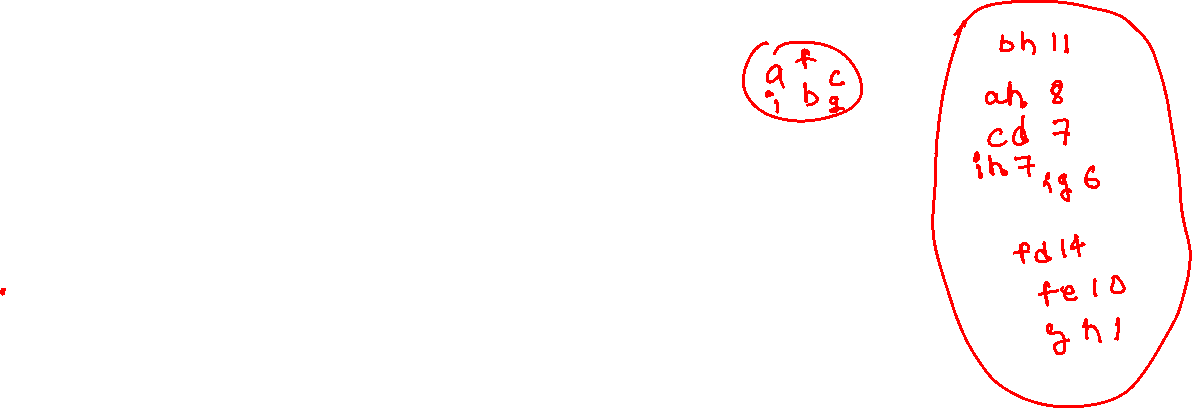 a f c
i b g
bh 11
ah 8
cd 7
ih 7 ig 6
fd 14
fe 10
gh 1